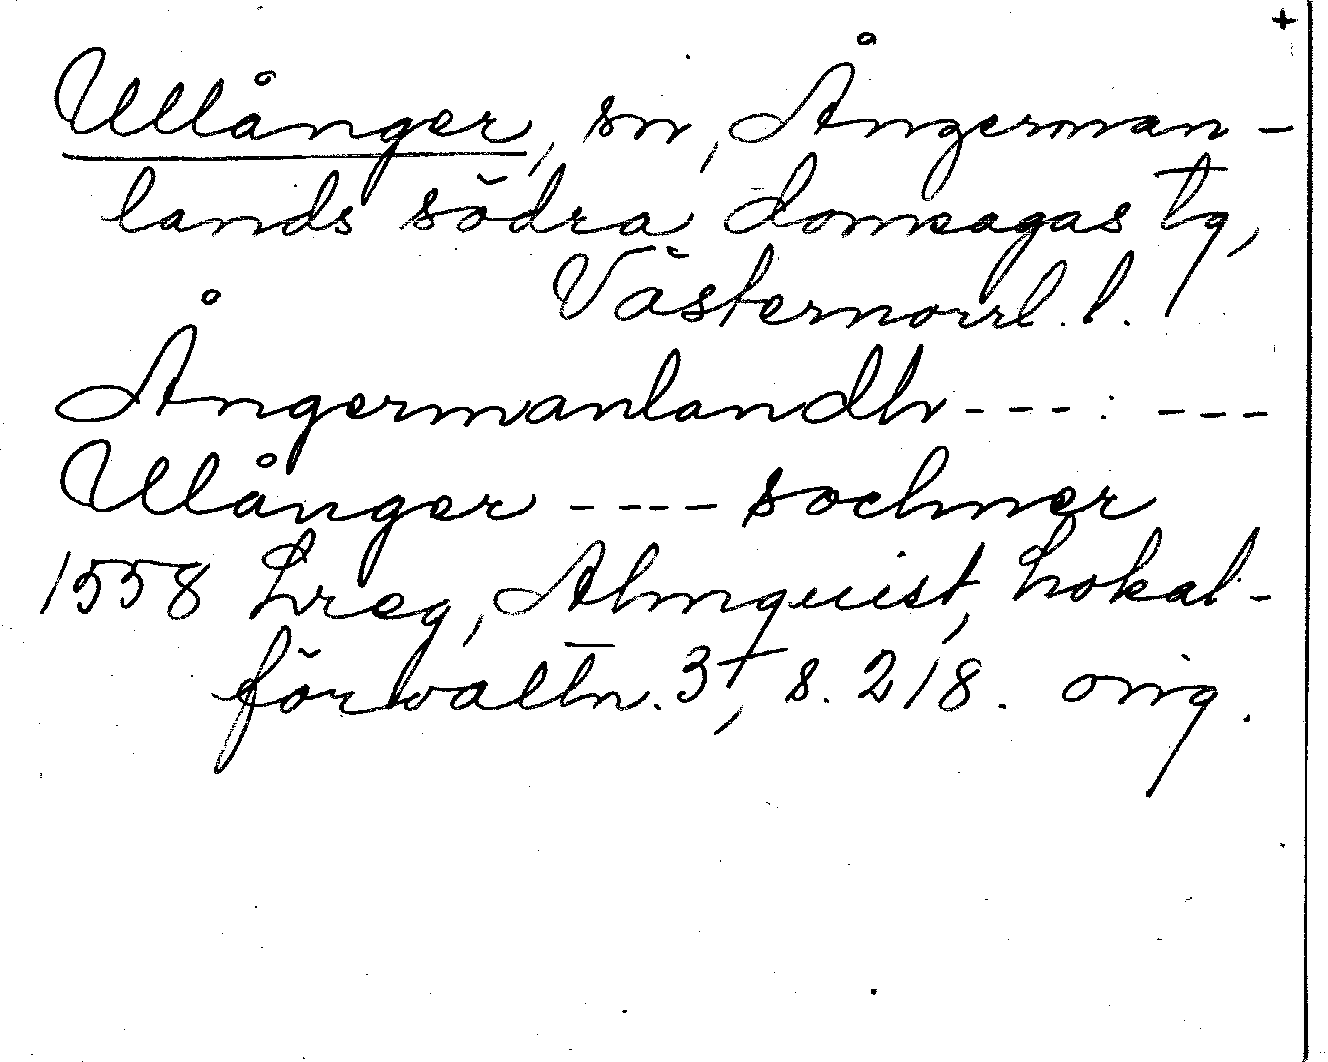 +
Ullånger, sn, Ångerman-
lands södra domsagas tg,
Västernorrl. l.
Ångermanlandh --- : ---
Ulånger ---- sochner
1558 Lreg, Almquist, Lokal-
förvaltn. 3, s. 218. orig.